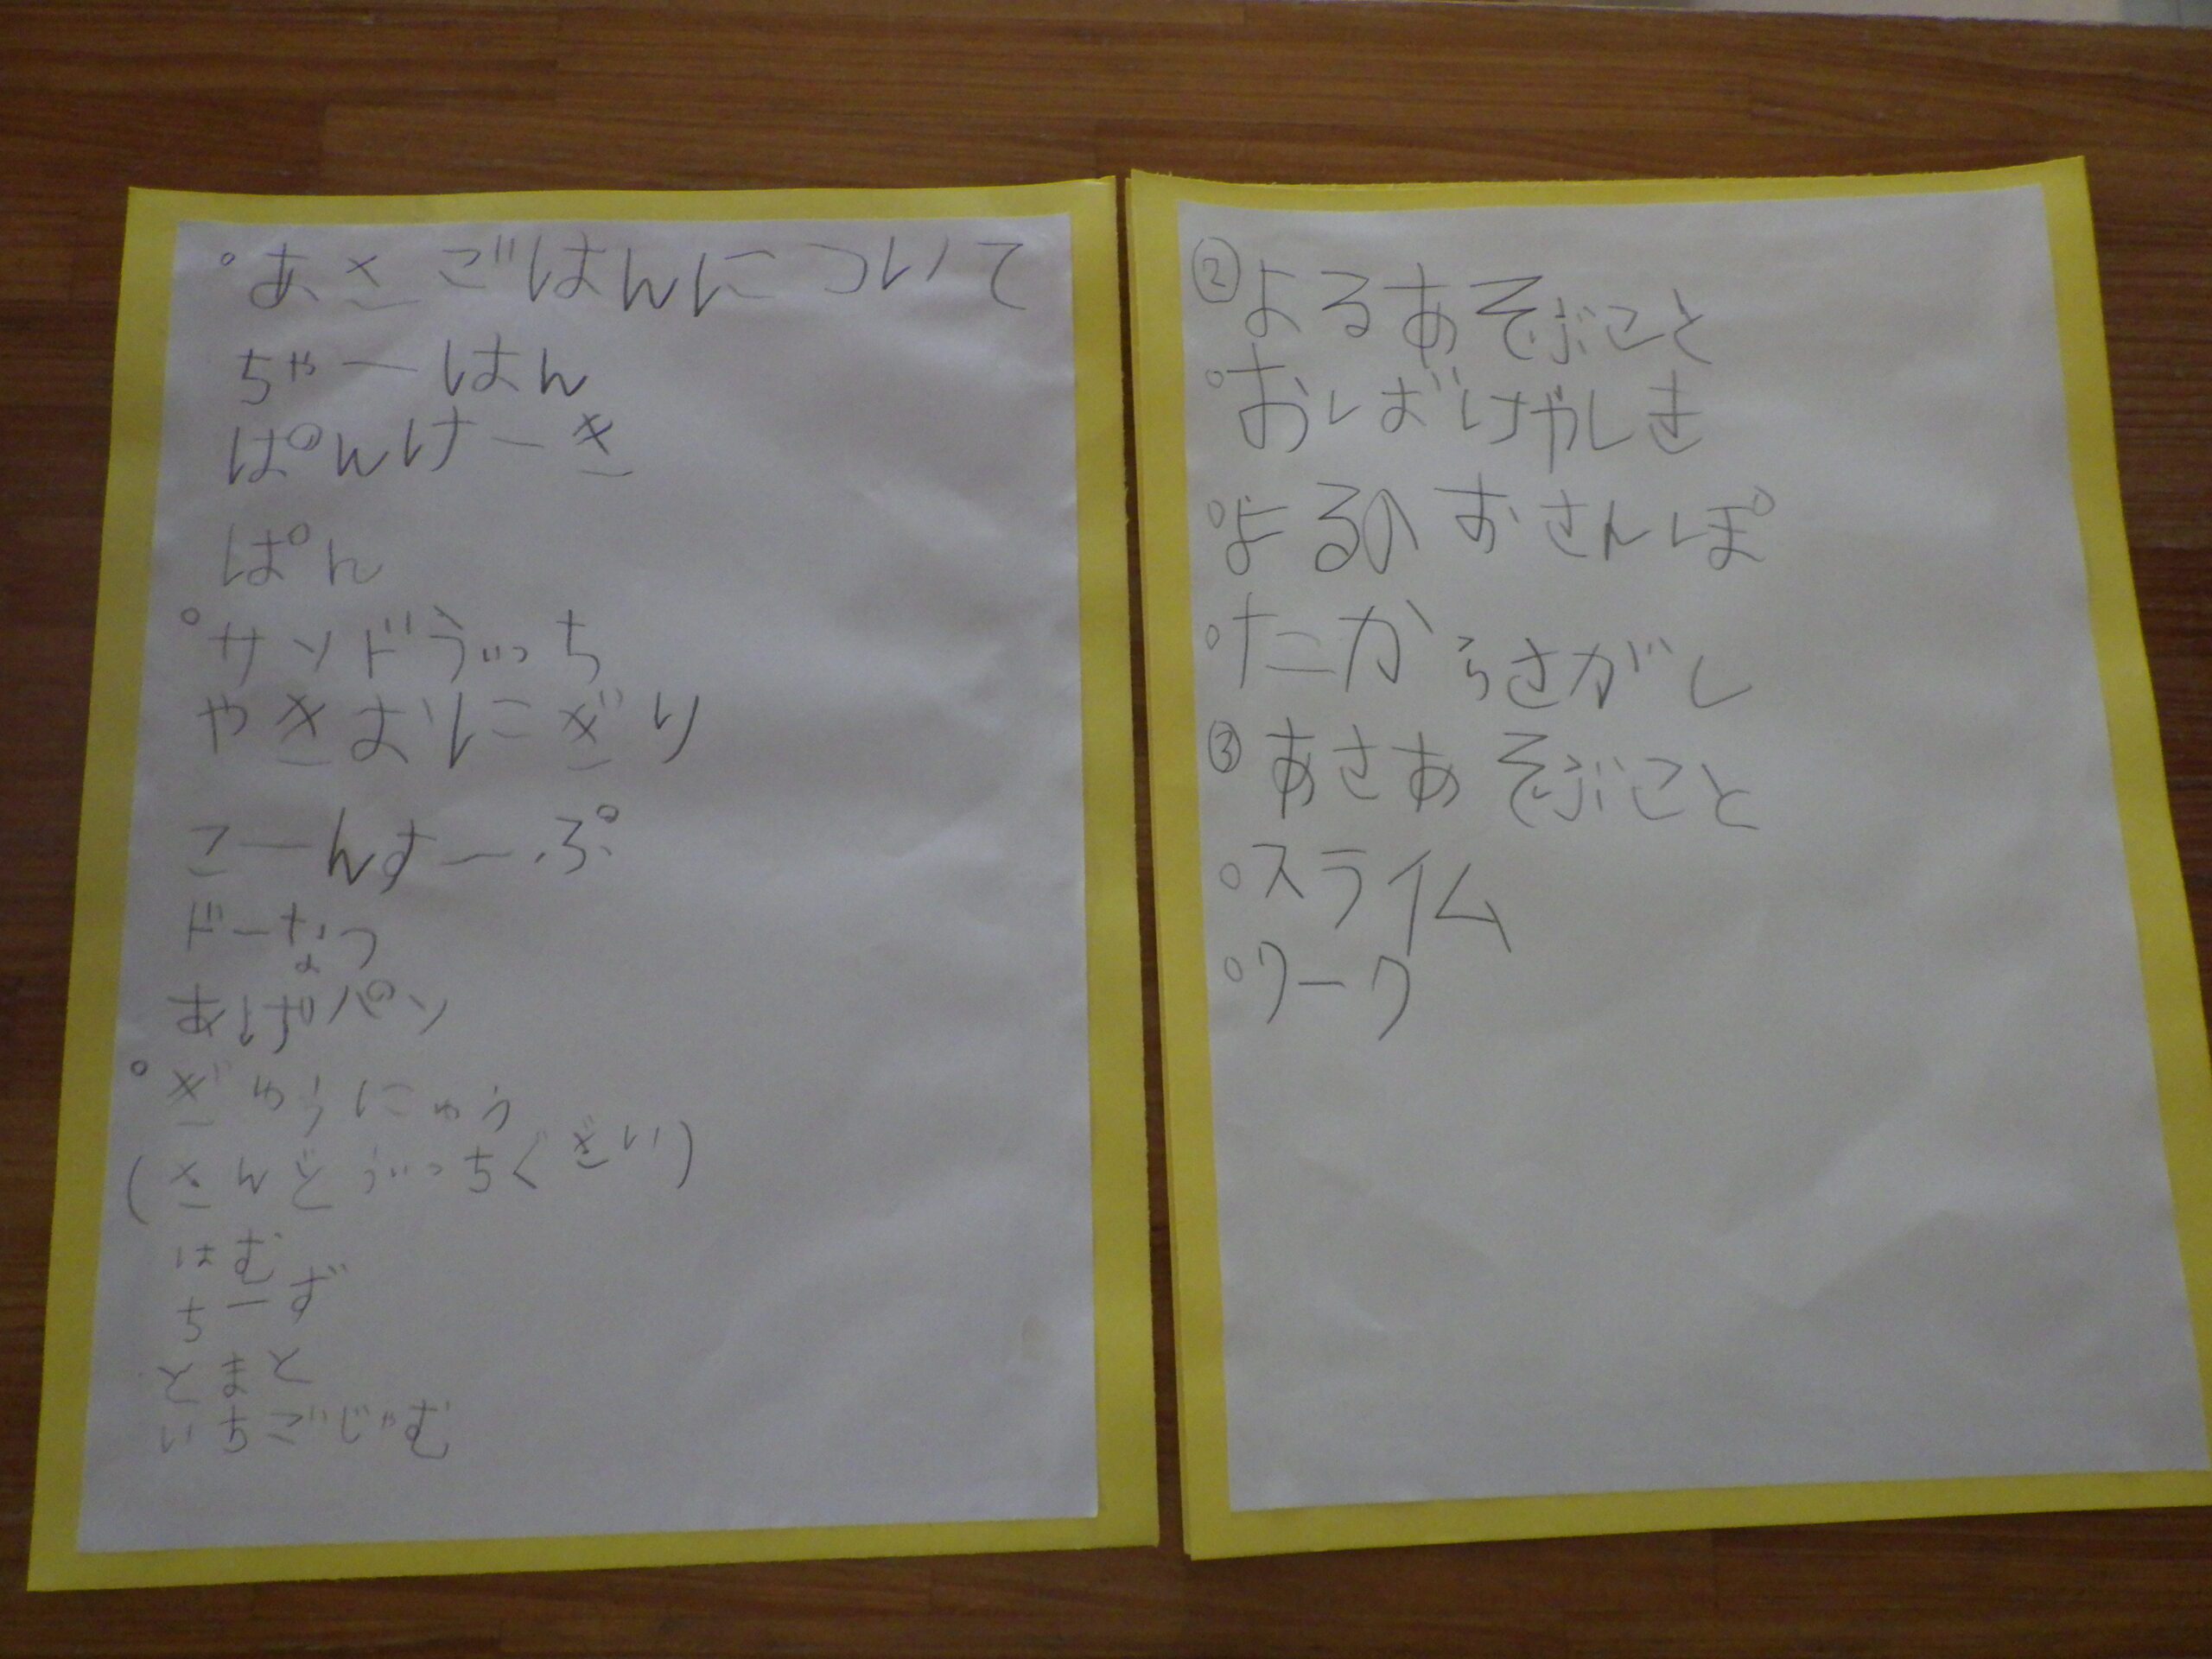 °あさごはんについて
ちゃーはん
ぱんけーき
ぱん
°サンドうぃっち
やきおにぎり
こーんすーぷ
ドーなつ
あげパン
°ぎゅうにゅう
(さんどうぃっちぐざい)
はむ
ちーず
とまと
いちごじゃむ
②よるあそぶこと
°おばけやしき
°よるのおさんぽ
°たからさがし
③あさあそぶこと
°スライム
°ワーク